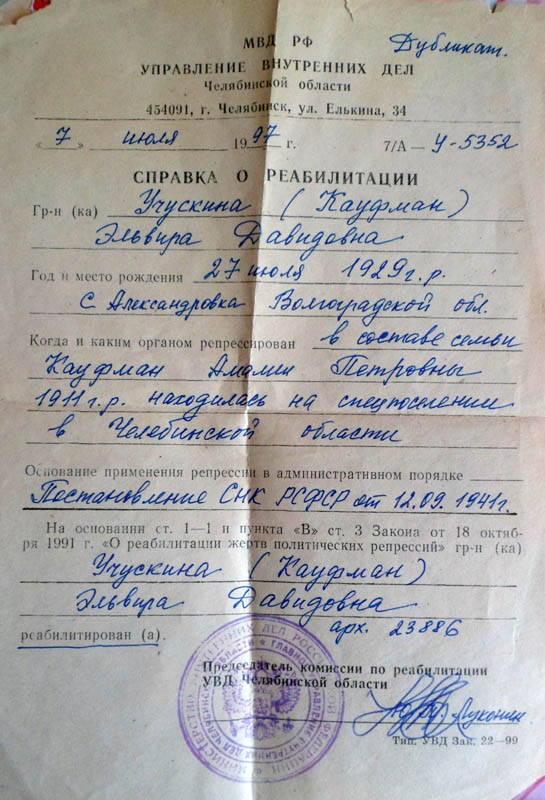 МВД РФ Дубликат.
УПРАВЛЕНИЕ ВНУТРЕННИХ ДЕЛ
Челябинской области
454091, г. Челябинск, ул. Елькина, 34
« 7 » июля 1997 г. 7/А — У-5352
СПРАВКА О РЕАБИЛИТАЦИИ
Гр-н (ка) Учускина (Кауфман)
Эльвира Давидовна
Год и место рождения 27 июля 1929 г.р.
с. Александровка Волгоградской обл.
Когда и каким органом репрессирован в составе семьи
Кауфман Амалии Петровны
1911 г.р. находилась на спецпоселении
в Челебинской области
Основание применения репрессии в административном порядке
Постановление СНК РСФСР от 12.09.1941г.
На основании ст. 1—1 и пункта «В» ст. 3 Закона от 18 октяб-
ря 1991 г. «О реабилитации жертв политических репрессий» гр-н (ка)
Учускина (Кауфман)
Эльвира Давидовна
реабилитирован (а). арх. 23886
Председатель комиссии по реабилитации
УВД Челябинской области
Тип. УВД Зак. 22—99